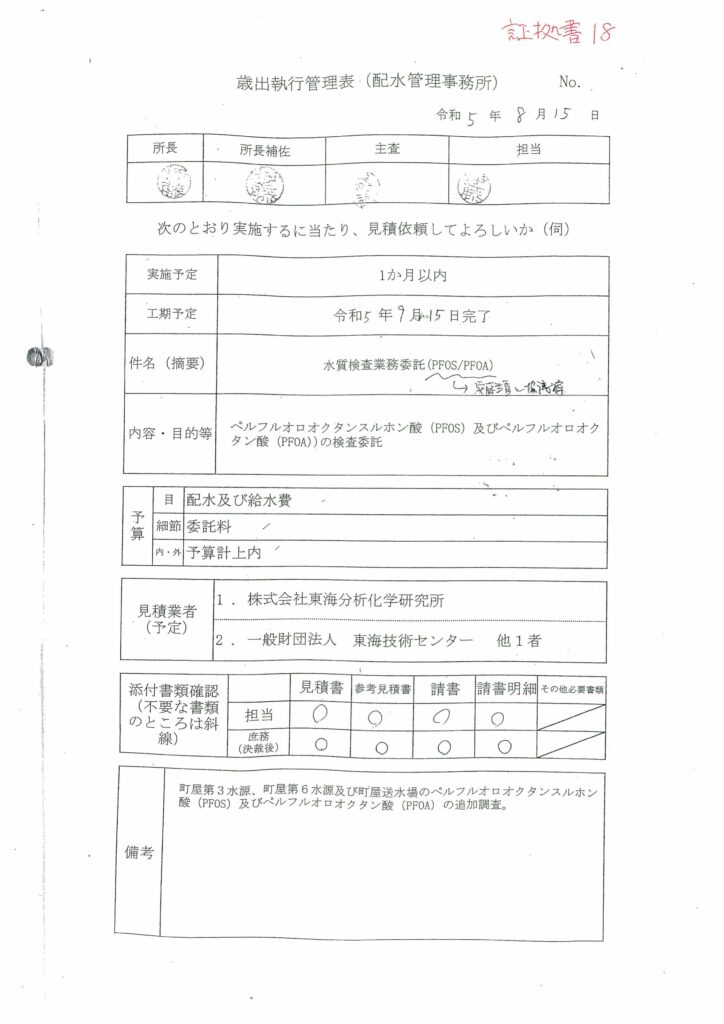 証拠書18
歳出執行管理表（配水管理事務所） No.
令和 5 年 8 月 15 日
所長 所長補佐 主査 担当
次のとおり実施するに当たり、見積依頼してよろしいか（伺）
実施予定 1か月以内
工期予定 令和5 年 9月 15日完了
件名（摘要） 水質検査業務委託(PFOS/PFOA)
内容・目的等
ペルフルオロオクタンスルホン酸（PFOS）及びペルフルオロオク
タン酸（PFOA））の検査委託
予算
目 配水及び給水費
細節 委託料
内・外 予算計上内
見積業者
（予定）
1．株式会社東海分析化学研究所
2．一般財団法人 東海技術センター 他１者
添付書類確認
（不要な書類
のところは斜
線）
見積書 参考見積書 請書 請書明細 その他必要書類
担当 ○ ○ ○ ○
庶務
（決裁後） ○ ○ ○ ○
備考
町屋第３水源、町屋第６水源及び町屋送水場のペルフルオロオクタンスルホン
酸（PFOS）及びペルフルオロオクタン酸（PFOA）の追加調査。